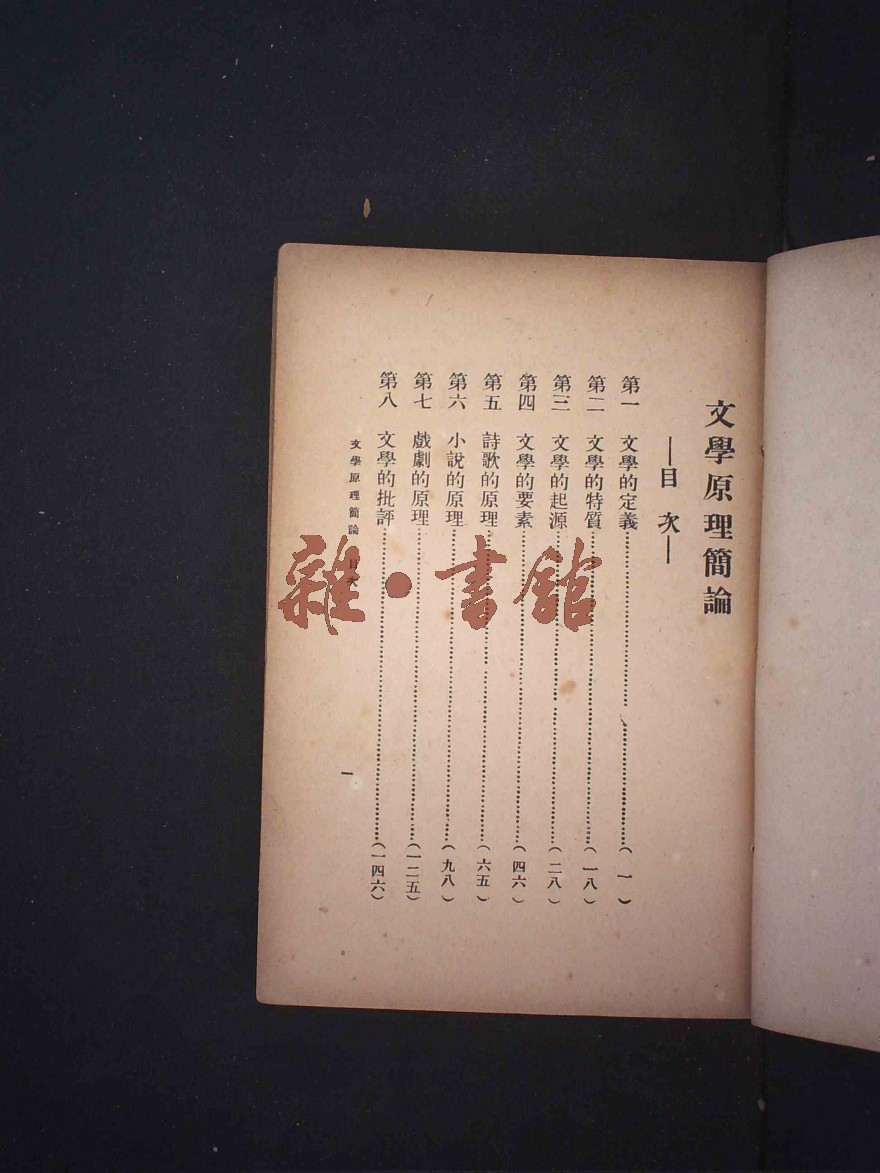 文學原理簡論
—目 次—
第一 文學的定義……(一)
第二 文學的特質……(一八)
第三 文學的起源……(二八)
第四 文學的要素……(四六)
第五 詩歌的原理……(六五)
第六 小說的原理……(九八)
第七 戲劇的原理……(一二五)
第八 文學的批評……(一四六)
文學原理簡論 目次 一
雜·書館